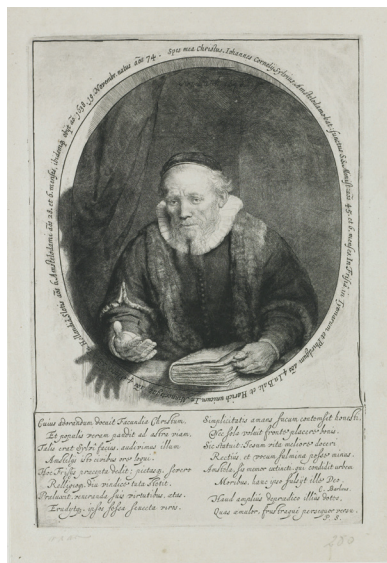 Spes mea Christus. Iohannes Cornelij Sylvius, Amstelodamobat: functus S.S. Minist: aos 45. et 6. menses. In Frisia, in Tjemarum et Phirdgum aos 4. In Balk et Harich unicum. In Minnertsga aos 4.
Hollandiæ, Slotis aos 6. Amstelodami aos 28. et 6. menses, ibidemq obijt ao 1638, 19. Novembr. natus aos 74.
Cuius adorandum docuit Facundia Christum,
Et populis veram pandit ad astra viam,
Talis erat Sylvi facies, audivimus illum
Amstelijs isto civibus ore loqui.
Hoc Frisijs præcepta dedit; pietasq severo
Relligioq diu vindice tuta stetit.
Præluxit, veneranda suis virtutibus, ætas.
Erudijtq ipsos fessa senecta viros.
Simplicitatis amans fucum contemsit honesti,
Nec sola voluit fronte placere bonis.
Sic statuit: Iesum vita meliore doceri
Rectius, et vocum fulmina posse minus.
Amstela, sis memor extincti, qui condidit urbem
Moribus, hanc ipso fulsijt ille Deo.
C. Barlæus.
Haud amplius deprædico illius dotes,
Quas æmulor, frustraque persequor versu.
P. S.